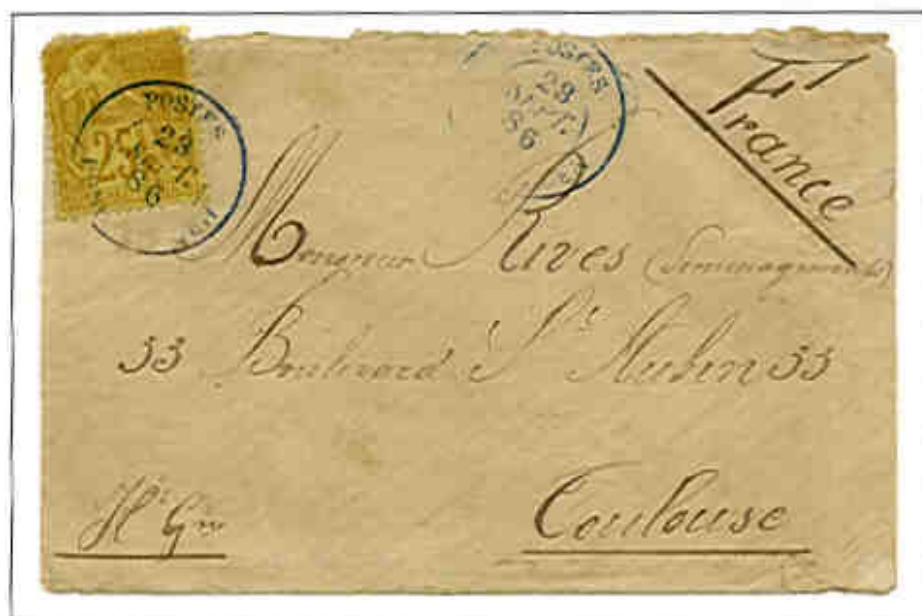 POSTES
23
86
25
POSTES
23
86
France
Monsieur Rives
33 Boulevard St Aubin 33
Hte Gne
Toulouse